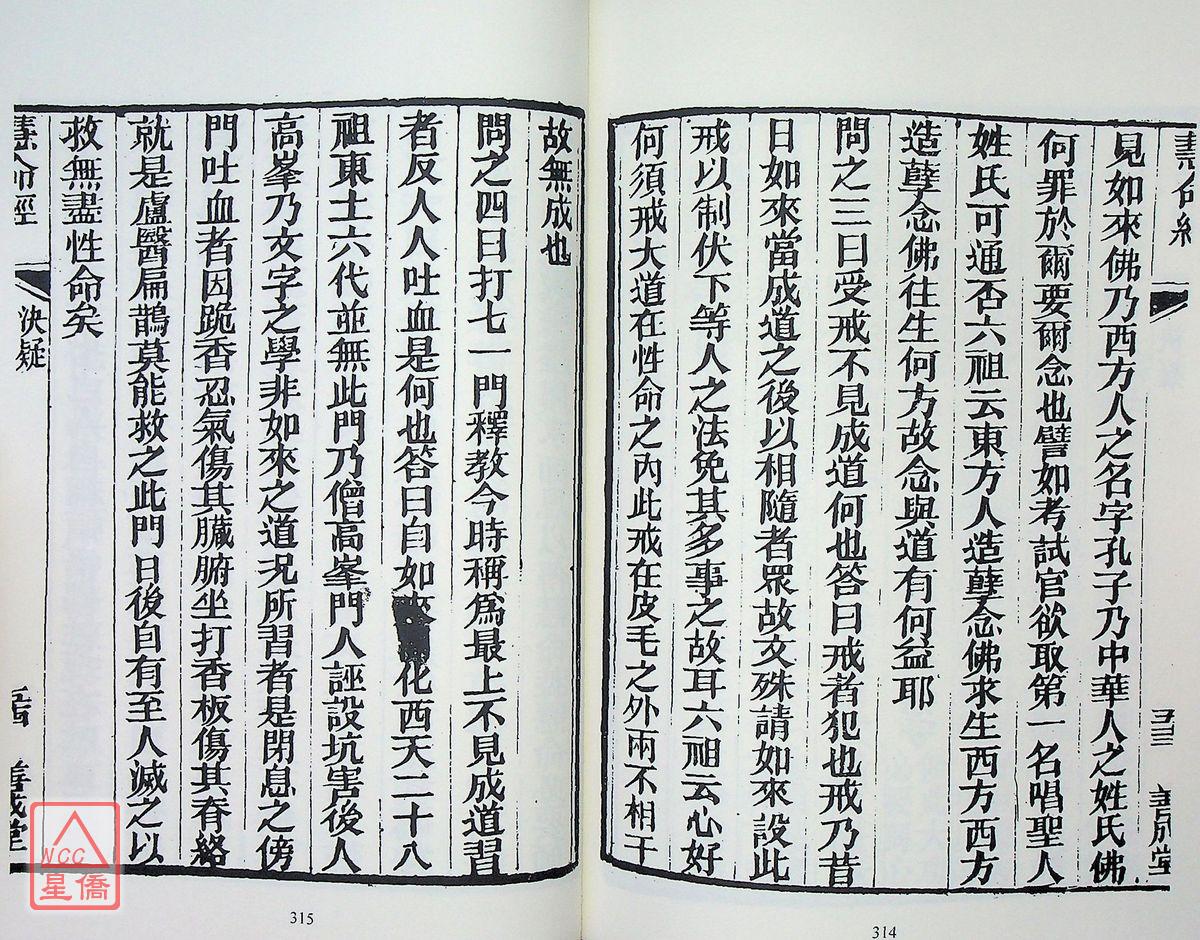 見如來佛乃西方人之名字孔子乃中華人之姓氏佛
何罪於爾要爾念也譬如考試官欲取第一名唱聖人
姓氏可通否六祖云東方人造孽念佛求生西方西方
造孽念佛往生何方故念與道有何益耶
問之三曰受戒不見成道何也答曰戒者犯也戒乃昔
日如來當成道之後以相隨者眾故文殊請如來設此
戒以制伏下等人之法免其多事之故耳六祖云心好
何須戒大道在性命之內此戒在皮毛之外兩不相干
314
故無成也
問之四曰打七一門釋教今時稱為最上不見成道習
者反人人吐血是何也答曰自如來化西天二十八
祖東土六代並無此門乃僧高峯門人誣設坑害後人
高峯乃文字之學非如來之道況所習者是閉息之傍
門吐血者因跪香忍氣傷其臟腑坐打香板傷其脊絡
就是盧醫扁鵲莫能救之此門日後自有至人滅之以
救無盡性命矣
慧命經
決疑
善成堂
315
NCC
星僑